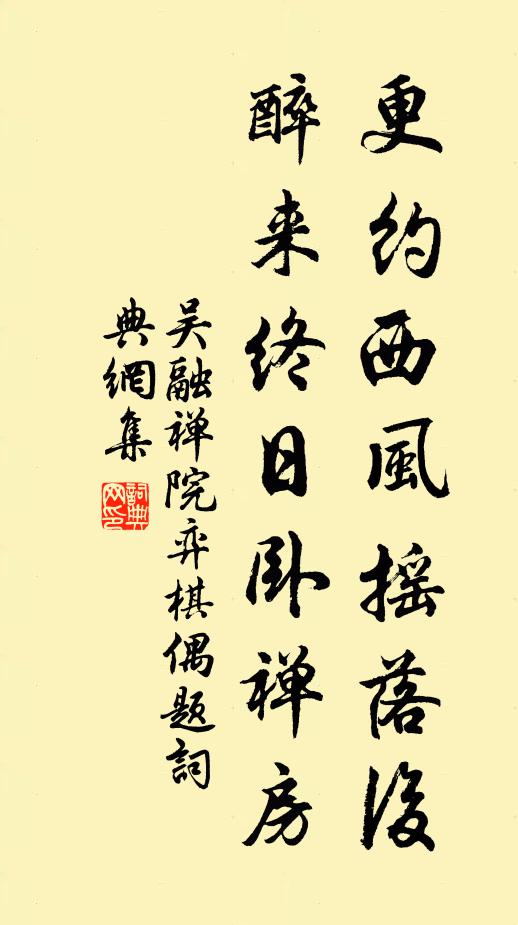 更约西風摇落後
醉来终日卧禅房
吴融禅院弈棋偶题詞
典網集
詞典
网印